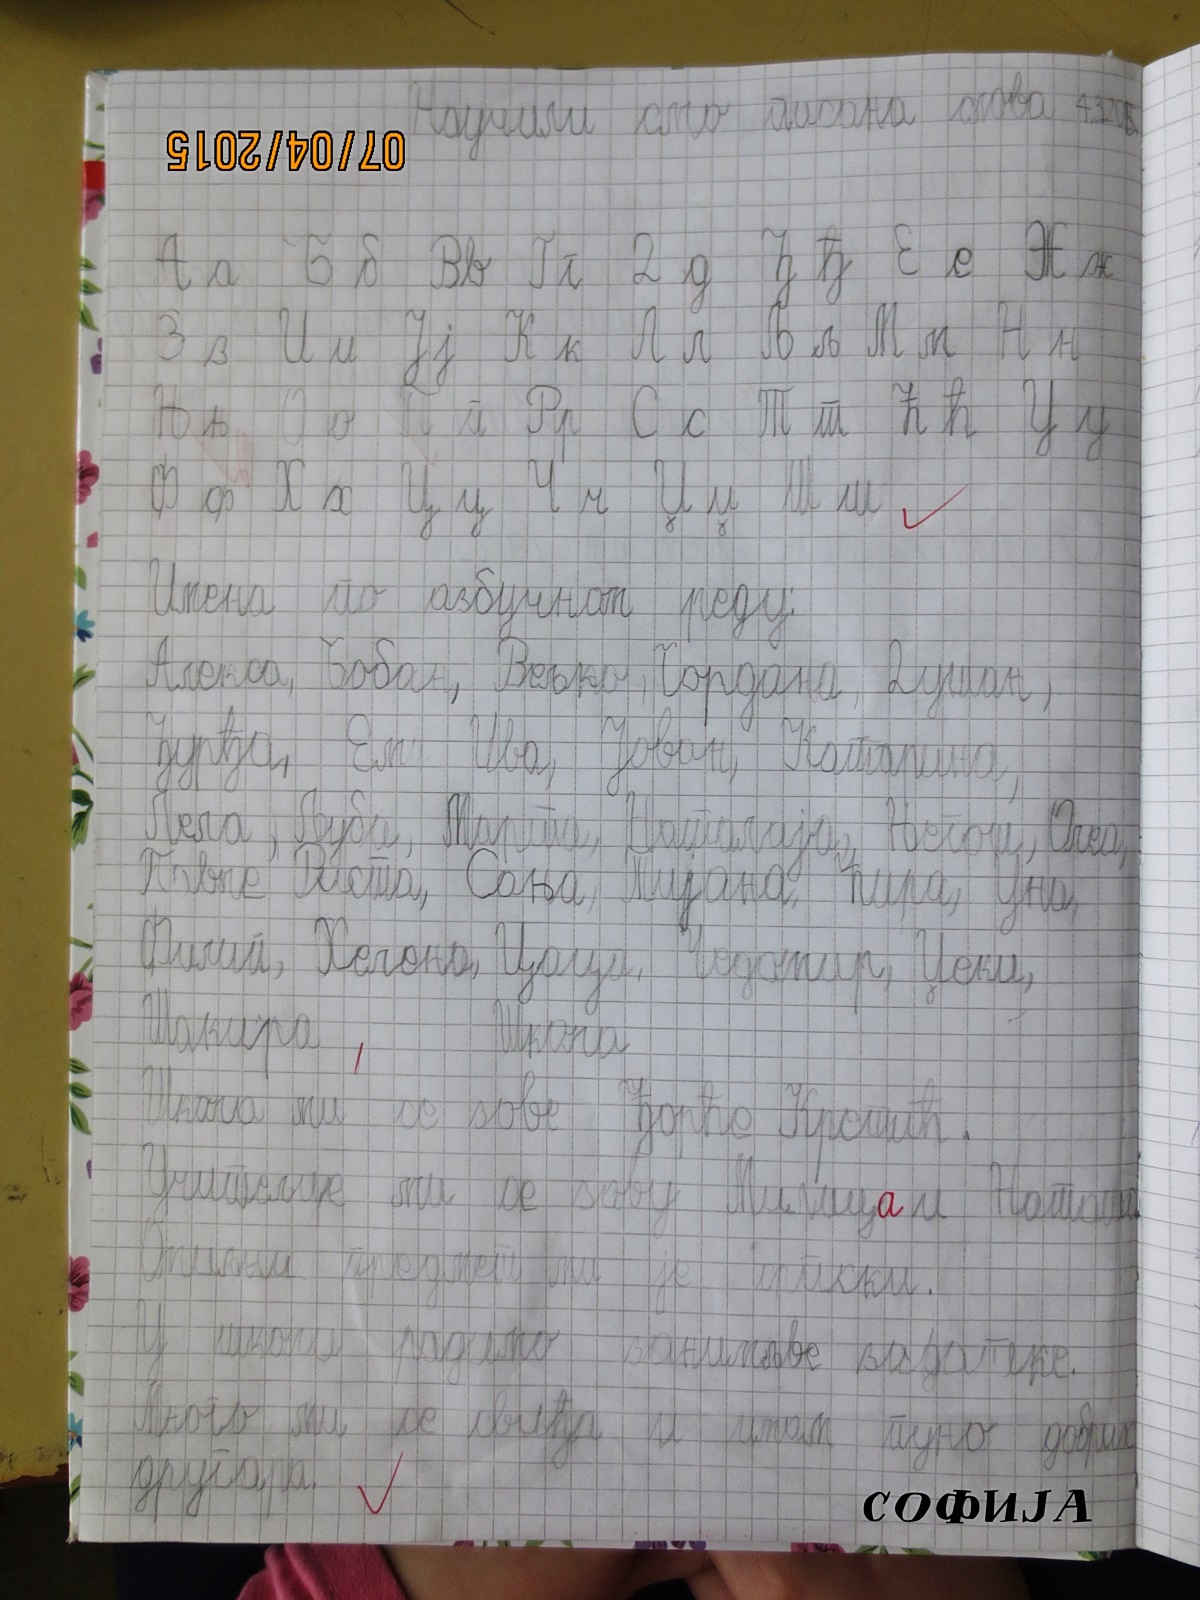 Научили смо писана слова
07/04/2015
А а Б б В в Г г Д д Ђ ђ Е е Ж ж
З з И и Ј ј К к Л л Љ љ М м Н н
Њ њ О о П п Р р С с Т т Ћ ћ У у
Ф ф Х х Ц ц Ч ч Џ џ Ш ш
Имена по азбучном реду:
Алекса, Бобан, Вељко, Гордана, Душан,
Ђурђа, Ем Ива, Јован, Катарина,
Лела, Љуба, Марта, Наталија, Његош, Олга,
Коста, Сања, Тијана, Ћира, Уна,
Филип, Хелена, Цаца, Чедомир, Џеки,
Шакира, Школа
Школа ми се зове Ђорђе Крстић.
Учитељице ми се зову Милица и Наташа
Омиљени предмет ми је
У школи радимо занимљиве задатке.
Много ми се свиђа и имам пуно добрих
другара.
СОФИЈА